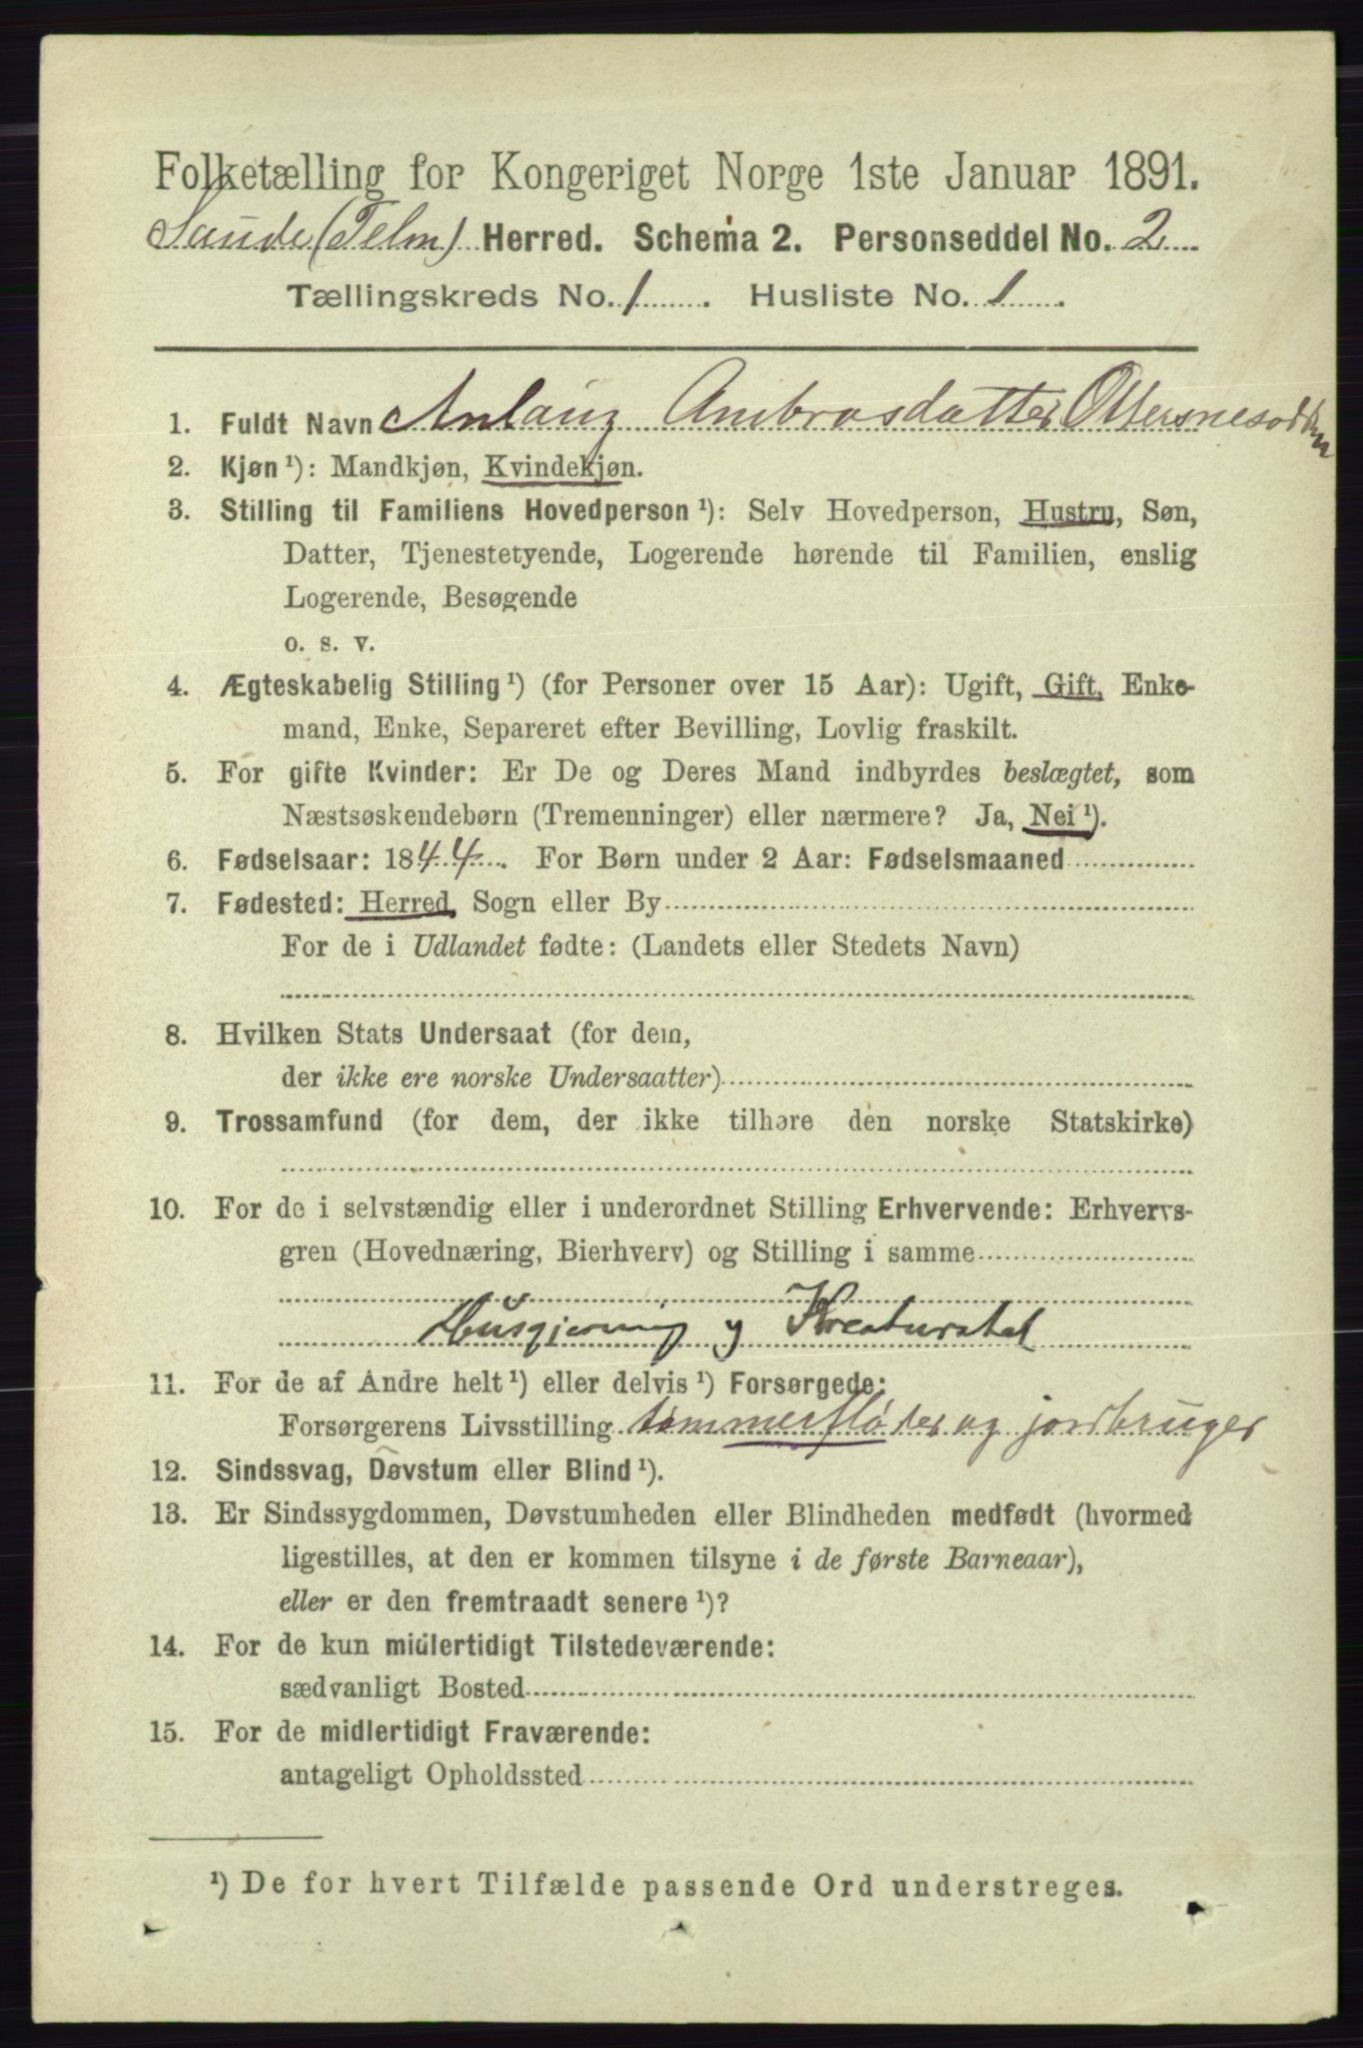 Folketælling for Kongeriget Norge 1ste Januar 1891.
Saude (Telm) Herred. Schema 2. Personseddel No. 2
Tællingskreds No. 1. Husliste No. 1.
1. Fuldt Navn Anlaug Ambrosdatter Ottersnesodden
2. Kjøn ¹): Mandkjøn, Kvindekjøn.
3. Stilling til Familiens Hovedperson ¹): Selv Hovedperson, Hustru, Søn,
Datter, Tjenestetyende, Logerende hørende til Familien, enslig
Logerende, Besøgende
o. s. v.
4. Ægteskabelig Stilling ¹) (for Personer over 15 Aar): Ugift, Gift, Enke-
mand, Enke, Separeret efter Bevilling, Lovlig fraskilt.
5. For gifte Kvinder: Er De og Deres Mand indbyrdes beslægtet, som
Næstsøskendebørn (Tremenninger) eller nærmere? Ja, Nei ¹).
6. Fødselsaar: 1844. For Børn under 2 Aar: Fødselsmaaned
7. Fødested: Herred, Sogn eller By
For de i Udlandet fødte: (Landets eller Stedets Navn)
8. Hvilken Stats Undersaat (for dem,
der ikke ere norske Undersaatter)
9. Trossamfund (for dem, der ikke tilhøre den norske Statskirke)
10. For de i selvstændig eller i underordnet Stilling Erhvervende: Erhvervs-
gren (Hovednæring, Bierhverv) og Stilling i samme
Husgjerning og Kreaturstel
11. For de af Andre helt ¹) eller delvis ¹) Forsørgede:
Forsørgerens Livsstilling tømmerfløder og jordbruger
12. Sindssvag, Døvstum eller Blind ¹).
13. Er Sindssygdommen, Døvstumheden eller Blindheden medfødt (hvormed
ligestilles, at den er kommen tilsyne i de første Barneaar),
eller er den fremtraadt senere ¹)?
14. For de kun midlertidigt Tilstedeværende:
sædvanligt Bosted
15. For de midlertidigt Fraværende:
antageligt Opholdssted
¹) De for hvert Tilfælde passende Ord understreges.